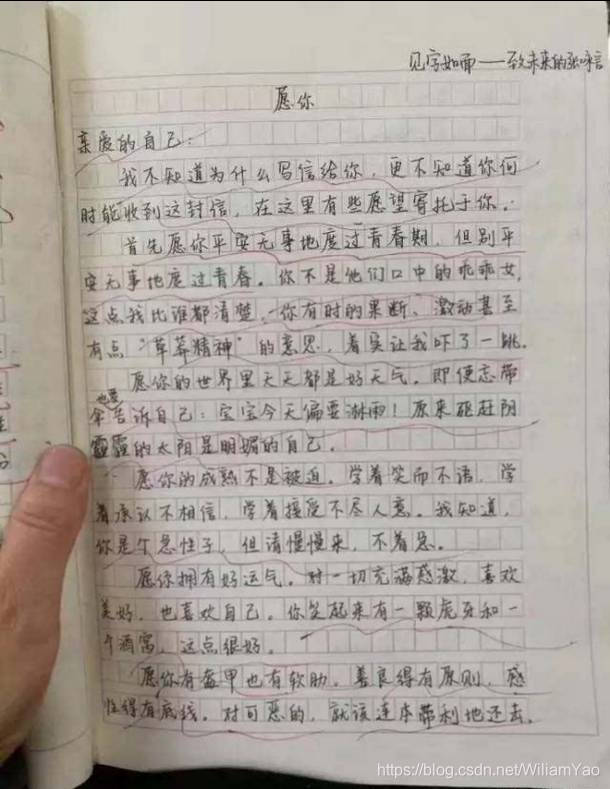 见字如面——致未来的张咏言
愿你
亲爱的自己:
我不知道为什么写信给你,更不知道你何
时能收到这封信,在这里有些愿望寄托于你。
首先愿你平安无事地度过青春期,但别平
安无事地度过青春。你不是他们口中的乖乖女,
这点我比谁都清楚,你有时的果断、激动甚至
有点“草莽精神”的意思,着实让我吓了一跳。
愿你的世界里天天都是好天气。即便忘带
也要
伞告诉自己:宝宝今天偏要淋雨!原来驱赶阴
霾的太阳是明媚的自己。
愿你的成熟不是被迫。学着笑而不语,学
着承认不相信,学着接受不尽人意。我知道,
你是个急性子,但请慢慢来,不着急。
愿你拥有好运气。对一切充满感激,喜欢
美好,也喜欢自己。你笑起来有一颗虎牙和一
个酒窝,这点很好。
愿你有盔甲也有软肋,善良得有原则,感
性得有底线。对可恶的,就该连本带利地还去。
https://blog.csdn.net/WiliamYao